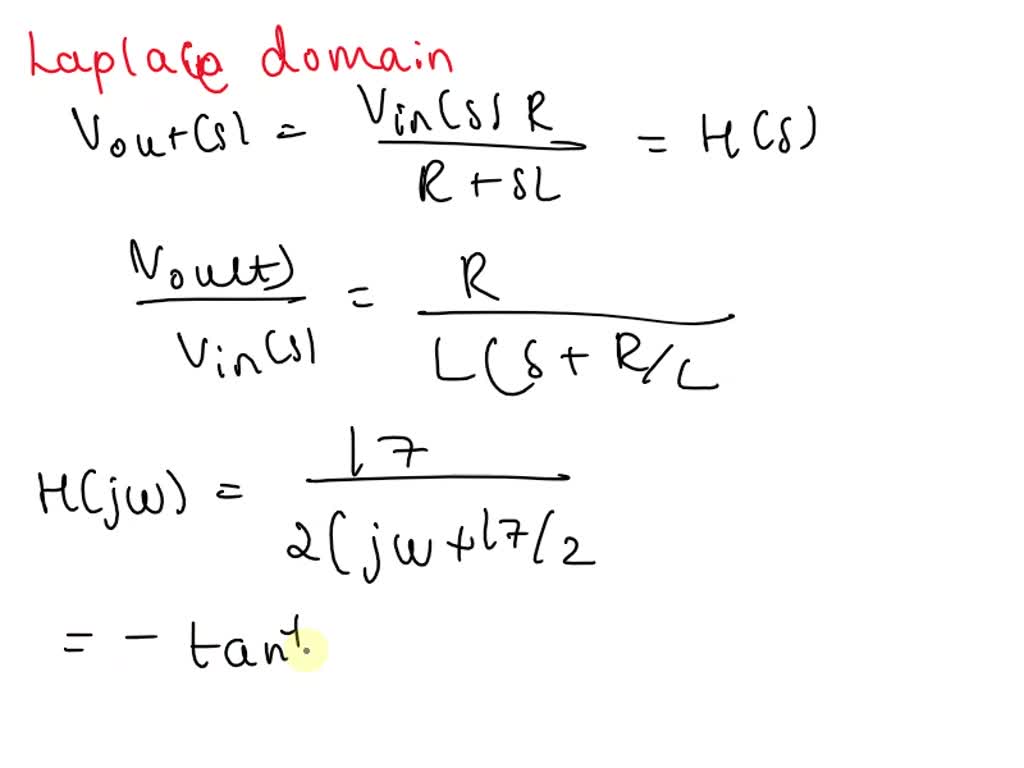 Laplace domain
Vout(s) = Vin(s) R / R + sL = H(s)
Vout(t) / Vin(s) = R / L(s + R/L
H(jω) = 17 / 2(jω + 17/2
= - tan⁻